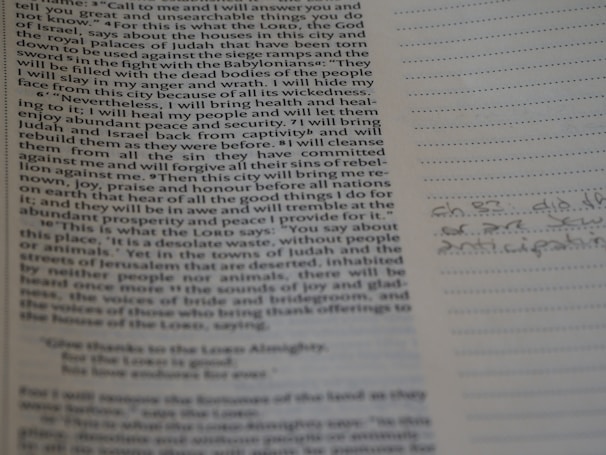 name: 3 "Call to me and I will answer you and
tell you great and unsearchable things you do
not know.' 4 For this is what the LORD, the God
of Israel, says about the houses in this city and
the royal palaces of Judah that have been torn
down to be used against the siege ramps and the
sword 5 in the fight with the Babylonians a: "They
will be filled with the dead bodies of the people
I will slay in my anger and wrath. I will hide my
face from this city because of all its wickedness.
6 " 'Nevertheless, I will bring health and heal-
ing to it; I will heal my people and will let them
enjoy abundant peace and security. 7 I will bring
Judah and Israel back from captivity b and will
rebuild them as they were before. 8 I will cleanse
them from all the sin they have committed
against me and will forgive all their sins of rebel-
lion against me. 9 Then this city will bring me re-
nown, joy, praise and honour before all nations
on earth that hear of all the good things I do for
it; and they will be in awe and will tremble at the
abundant prosperity and peace I provide for it.'
10 "This is what the LORD says: "You say about
this place, 'It is a desolate waste, without people
or animals.' Yet in the towns of Judah and the
streets of Jerusalem that are deserted, inhabited
by neither people nor animals, there will be
heard once more 11 the sounds of joy and glad-
ness, the voices of bride and bridegroom, and
the voices of those who bring thank offerings to
the house of the LORD, saying,
"Give thanks to the LORD Almighty,
for the LORD is good;
his love endures for ever."
For I will restore the fortunes of the land as they
were before,' says the LORD.
12 "This is what the LORD Almighty says: "In this
place, desolate and without people or animals –
ch 32: did th
or are
anticipatin